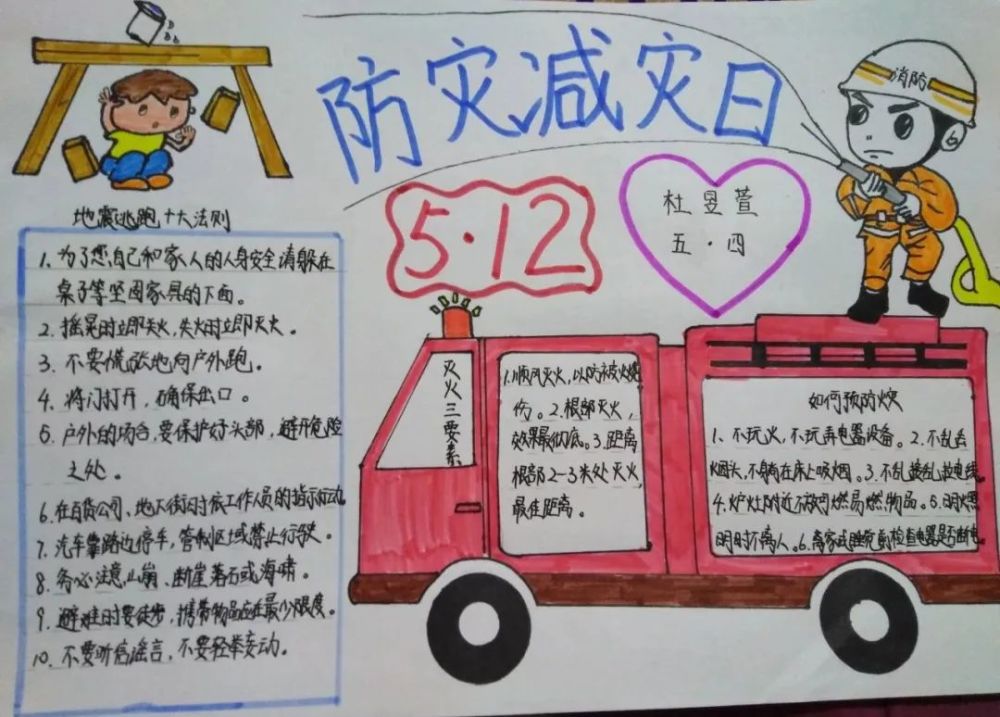 防灾减灾日
消防
5·12
杜昱萱
五·四
地震逃跑十大法则
1. 为了您自己和家人的人身安全请躲在
桌子等坚固家具的下面。
2. 摇晃时立即灭火,失火时立即灭火。
3. 不要慌张地向户外跑。
4. 将门打开,确保出口。
5. 户外的场合,要保护好头部,避开危险
之处。
6. 在百货公司、地下街时依工作人员的指示行动
7. 汽车靠路边停车,管制区域禁止行驶。
8. 务必注意山崩、断崖落石或海啸。
9. 避难时要徒步,携带物品应在最少限度。
10. 不要听信谣言,不要轻举妄动。
灭火三要素
1.顺风灭火,以防被火烧
伤。2.根部灭火,
效果最彻底。3.距离
根部2-3米处灭火,
最佳距离。
如何预防火灾
1、不玩火,不玩弄电器设备。2.不乱丢
烟头,不躺在床上吸烟。3.不乱接乱拉电线
4.炉灶附近不放可燃易燃物品。5.明火照
明时不离人。6.离家或睡觉前检查电器是否断电